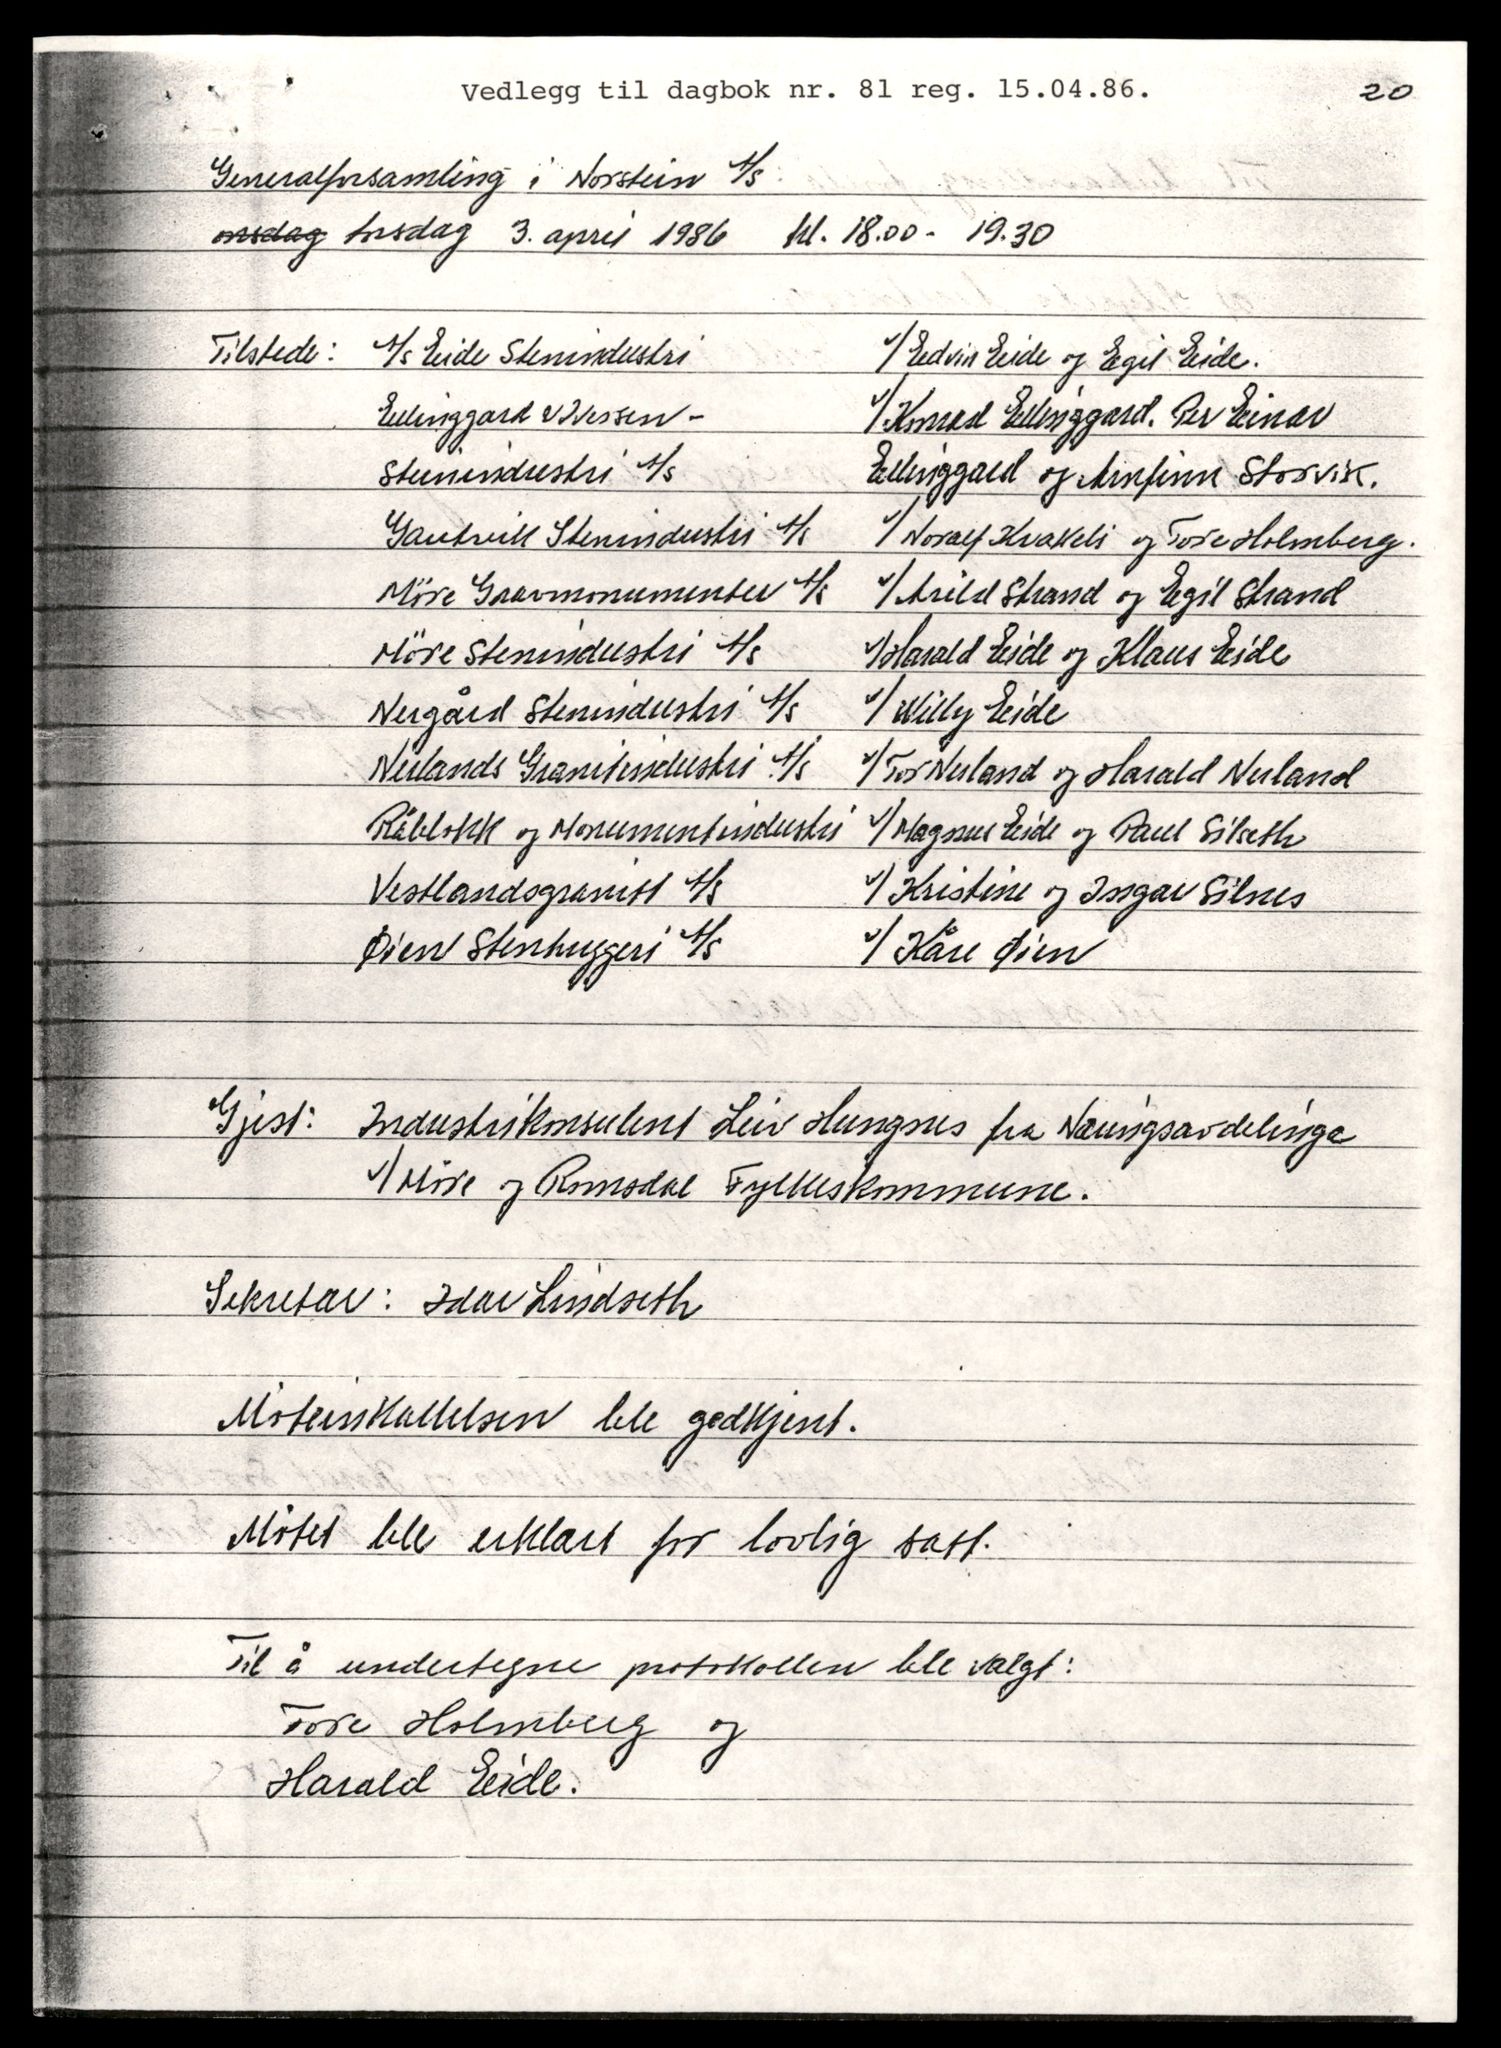 Vedlegg til dagbok nr. 81 reg. 15.04.86. 20
Generalforsamling i Norstein A/S
onsdag torsdag 3. april 1986 kl. 18.00 - 19.30
Tilstede: A/S Eide Stenindustri v/ Edvin Eide og Egil Eide.
Ellinggard & Iversen - v/ Konrad Ellinggard. Per Einar
Steinindustri A/S Ellinggard og Arnfinn Storvik.
Gautvik Stenindustri A/S v/ Noralf Kvakeli og Tore Holmberg.
Möre Gravmonumenter A/S v/ Arild Strand og Egil Strand
Möre Stenindustri A/S v/ Harald Eide og Klaus Eide
Nergård Stenindustri A/S v/ Willy Eide
Nerlands Granitindustri A/S v/ Tor Nerland og Harald Nerland
Råblokk og Monumentindustri v/ Magnus Eide og Paul Silseth
Vestlandsgranitt A/S v/ Kristine og Ingar Silnes
Øien Stenhuggeri A/S v/ Kåre Øien
Gjest: Industrikonsulent Leiv Hungnes fra Næringsavdelinga
v/ Möre og Romsdal Fylkeskommune.
Sekretær: Idar Lindseth
Møteinkallelsen ble godkjent.
Møtet ble erklært for lovlig satt.
Til å undertegne protokollen ble valgt:
Tore Holmberg og
Harald Eide.